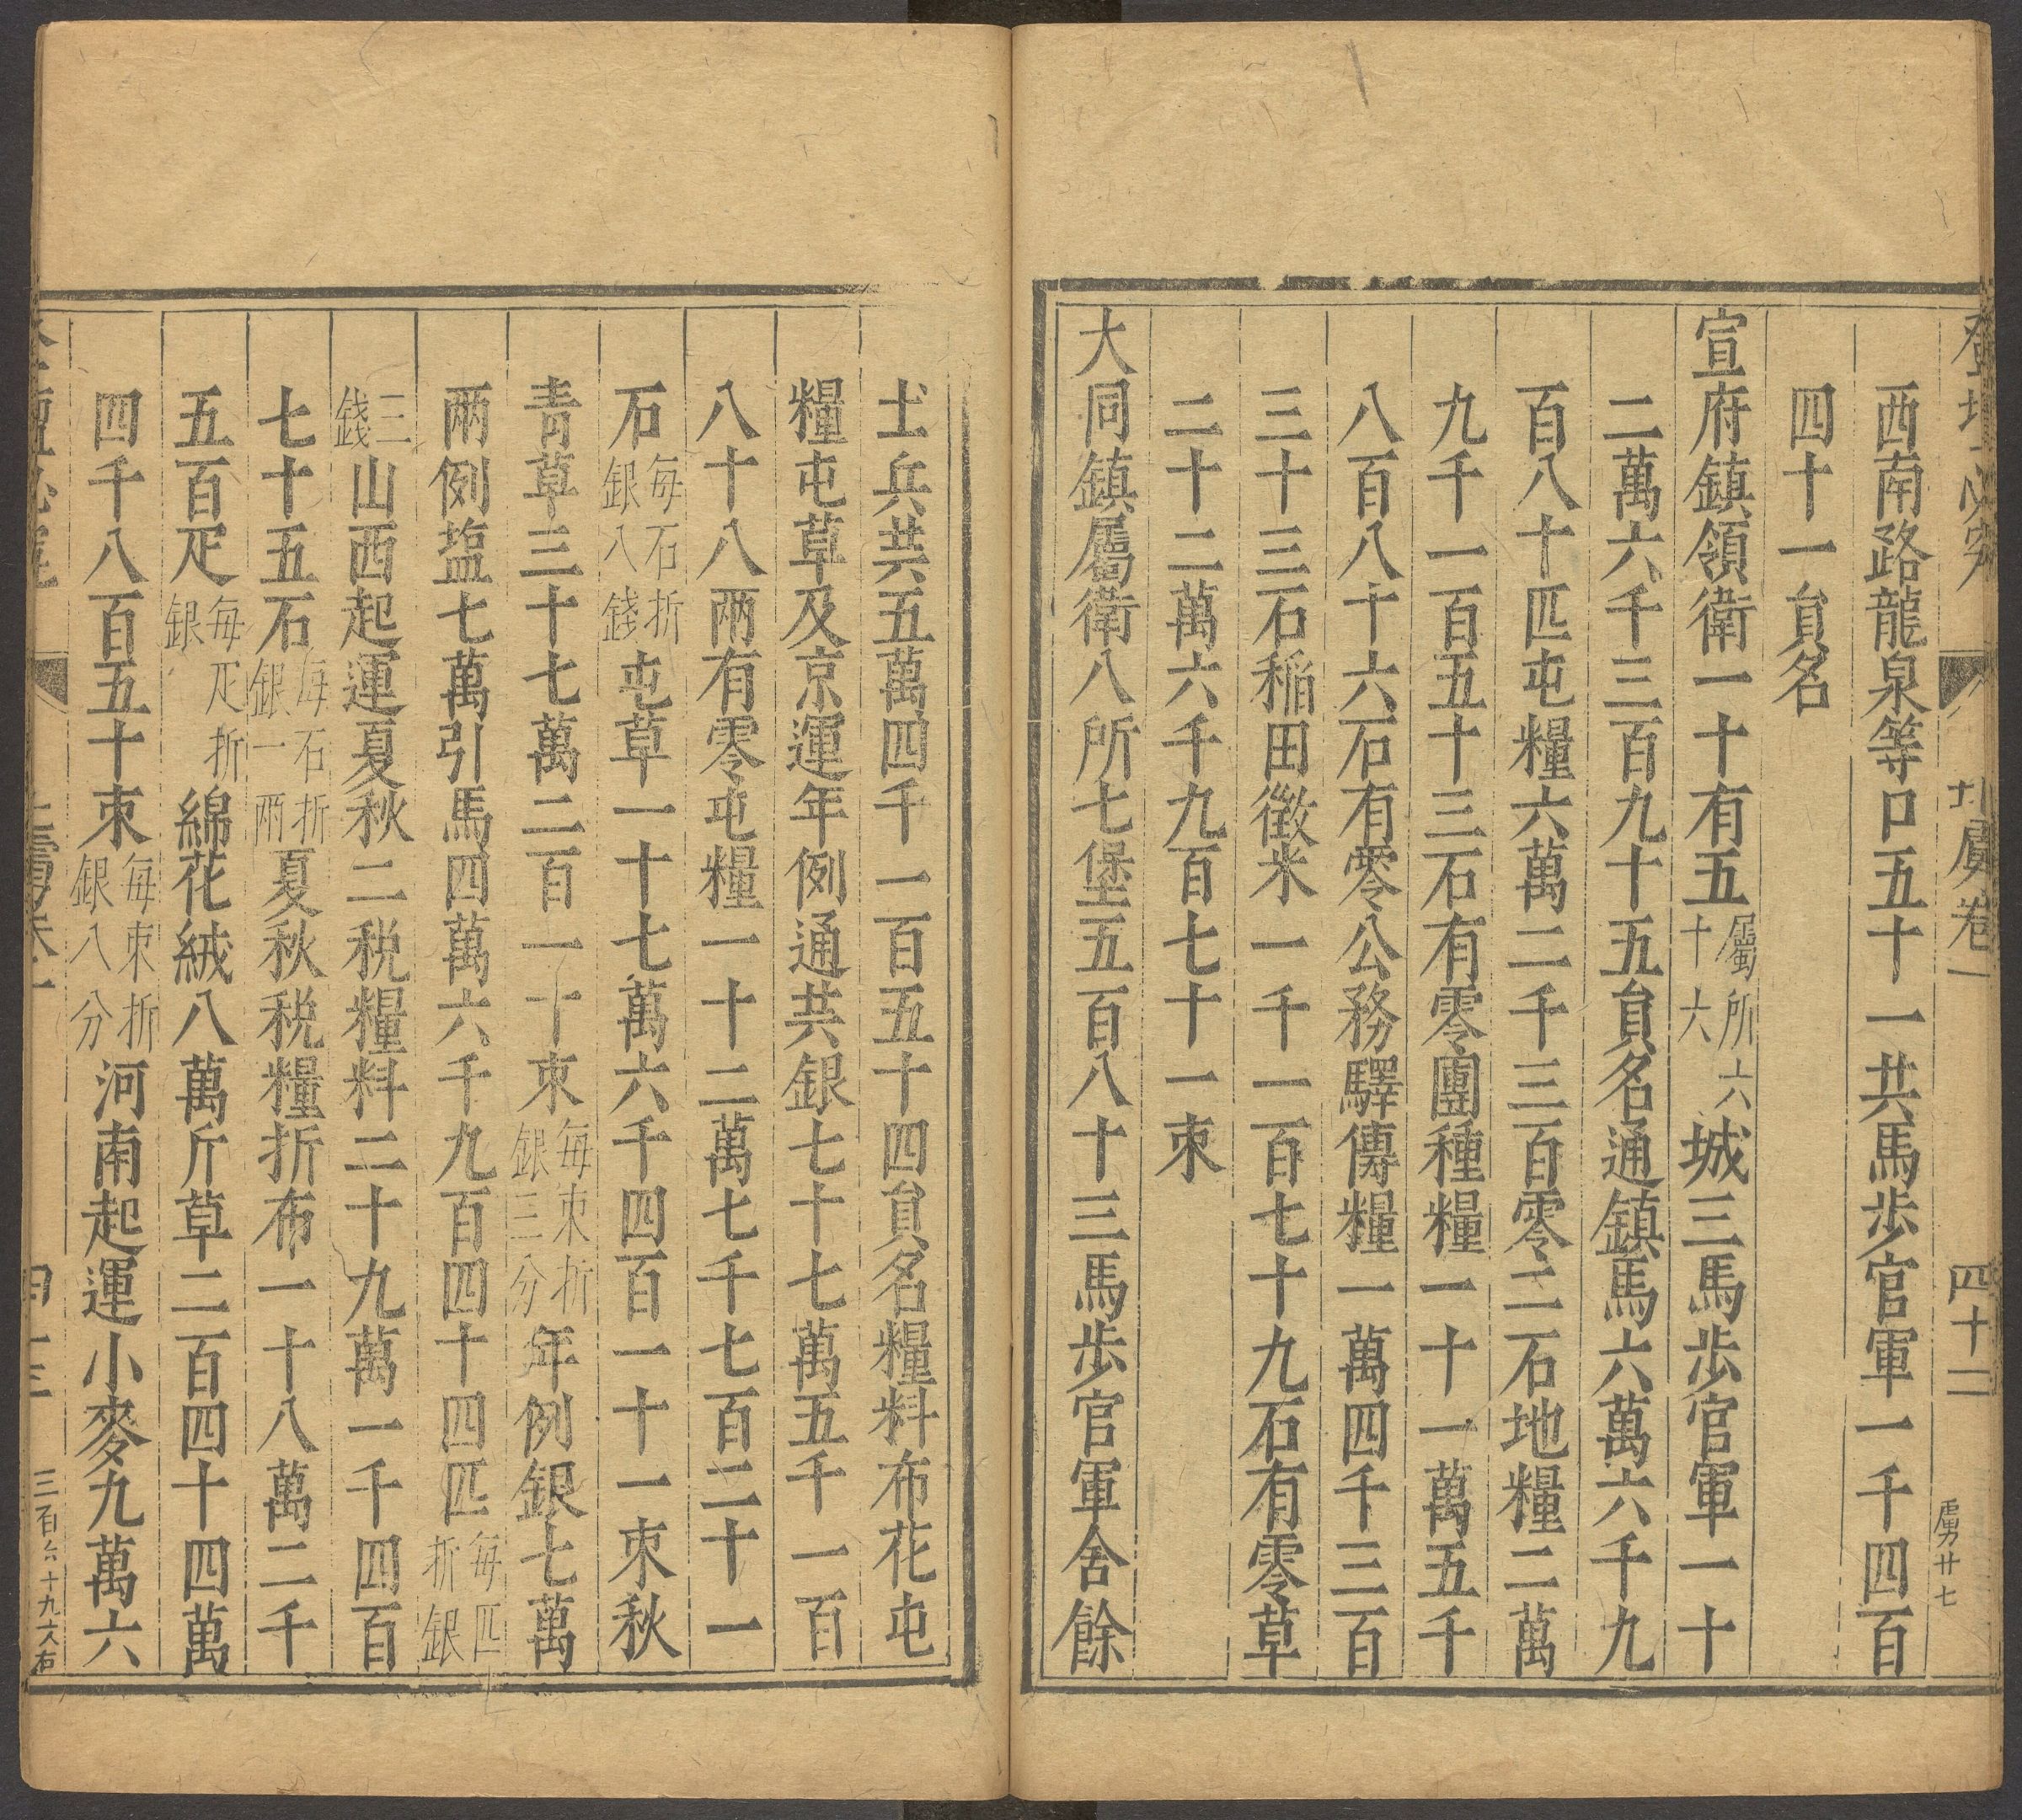 登壇必究
北虜卷一
四十二
虜廿七
西南路龍泉等口五十一共馬步官軍一千四百
四十一員名
宣府鎮領衛一十有五屬所六十六城三馬步官軍一十
二萬六千三百九十五員名通鎮馬六萬六千九
百八十匹屯糧六萬二千三百零二石地糧二萬
九千一百五十三石有零團種糧一十一萬五千
八百八十六石有零公務驛傳糧一萬四千三百
三十三石稲田徵米一千一百七十九石有零草
二十二萬六千九百七十一束
大同鎮屬衛八所七堡五百八十三馬步官軍舍餘
士兵共五萬四千一百五十四員名糧料布花屯
糧屯草及京運年例通共銀七十七萬五千一百
八十八兩有零屯糧一十二萬七千七百二十一
石每石折銀八錢屯草一十七萬六千四百一十一束秋
青草三十七萬二百一十束每束折銀三分年例銀七萬
兩例塩七萬引馬四萬六千九百四十四匹每匹折銀
三錢山西起運夏秋二税糧料二十九萬一千四百
七十五石每石折銀一兩夏秋税糧折布一十八萬二千
五百疋每疋折銀綿花絨八萬斤草二百四十四萬
四千八百五十束每束折銀八分河南起運小麥九萬六